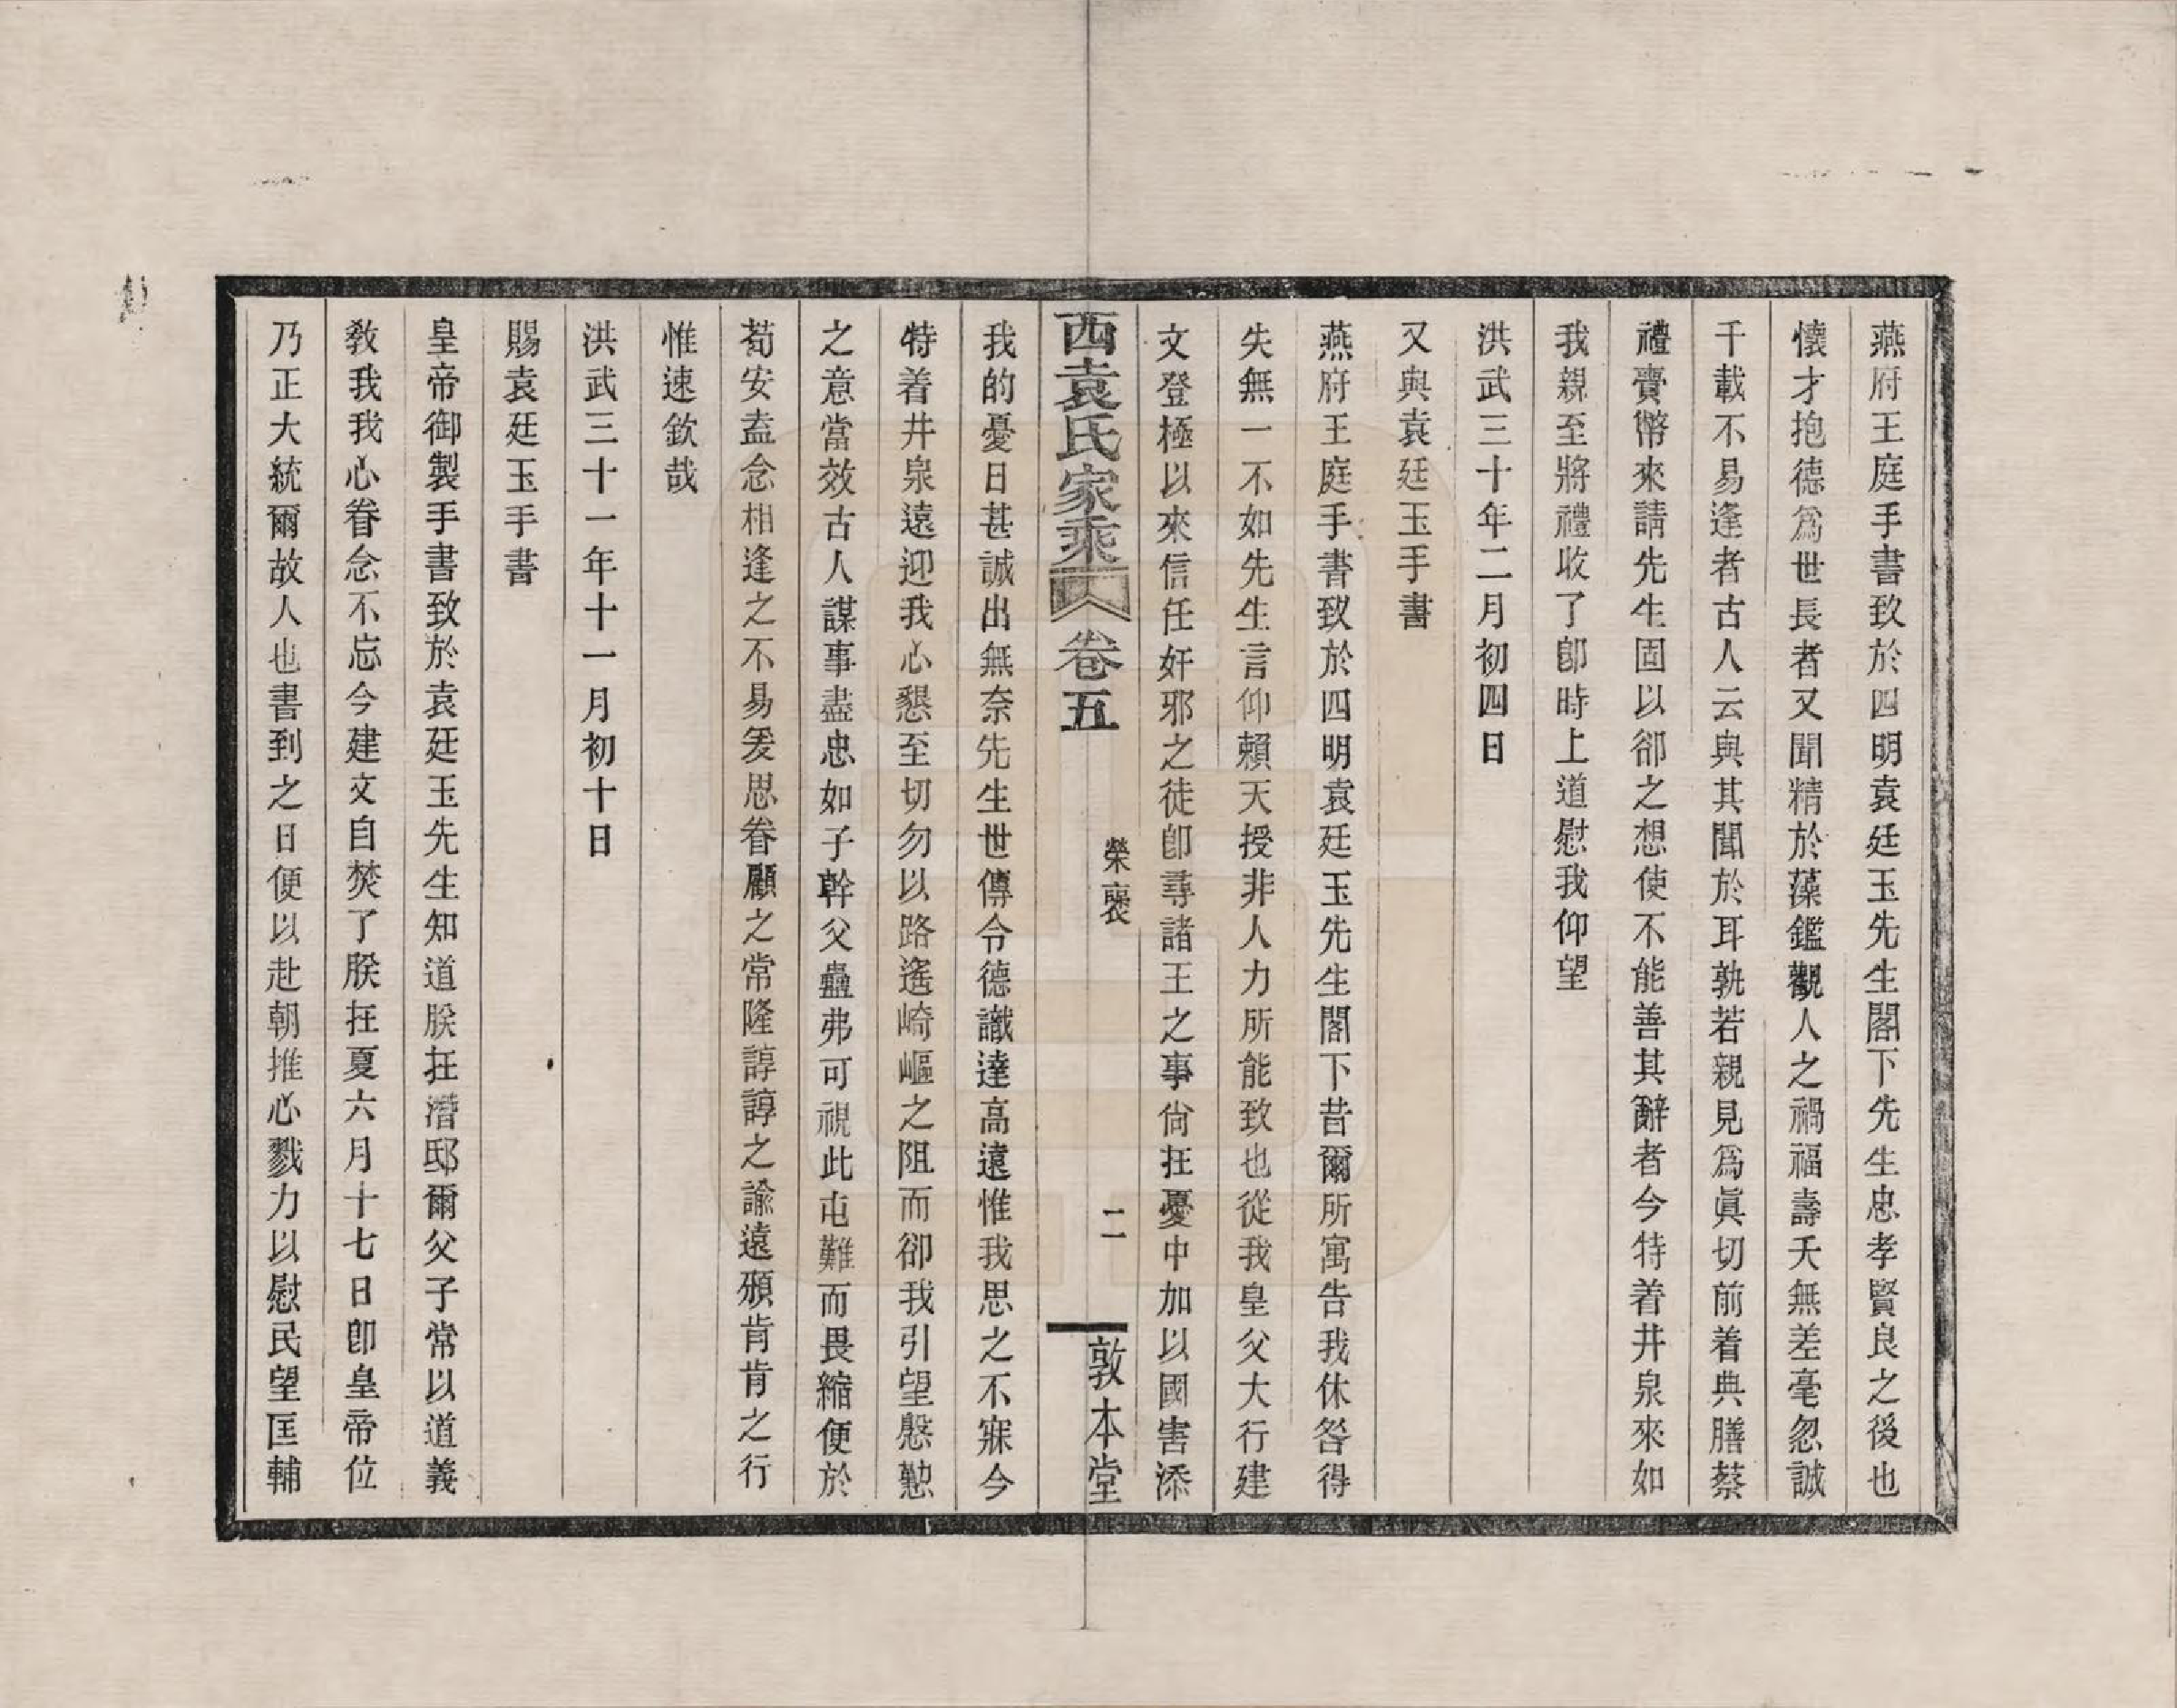 燕府王庭手書致於四明袁廷玉先生閣下先生忠孝賢良之後也
懷才抱德爲世長者又聞精於藻鑑觀人之禍福壽夭無差毫忽誠
千載不易逢者古人云與其聞於耳孰若親見爲眞切前着典膳蔡
禮賫幣來請先生固以郤之想使不能善其辭者今特着井泉來如
我親至將禮收了卽時上道慰我仰望
洪武三十年二月初四日
又與袁廷玉手書
燕府王庭手書致於四明袁廷玉先生閣下昔爾所寓告我休咎得
失無一不如先生言仰賴天授非人力所能致也從我皇父大行建
文登極以來信任奸邪之徒卽尋諸王之事尙在憂中加以國害添
西袁氏家乘 卷五 榮褒 二 敦本堂
我的憂日甚誠出無奈先生世傳令德識達高遠惟我思之不寐今
特着井泉遠迎我心懇至切勿以路遙崎嶇之阻而卻我引望慇懃
之意當效古人謀事盡忠如子幹父蠱弗可視此屯難而畏縮便於
苟安盍念相逢之不易爰思眷顧之常隆諄諄之諭遠頫肯肯之行
惟速欽哉
洪武三十一年十一月初十日
賜袁廷玉手書
皇帝御製手書致於袁廷玉先生知道朕在潛邸爾父子常以道義
敎我我心眷念不忘今建文自焚了朕在夏六月十七日卽皇帝位
乃正大統爾故人也書到之日便以赴朝推心戮力以慰民望匡輔